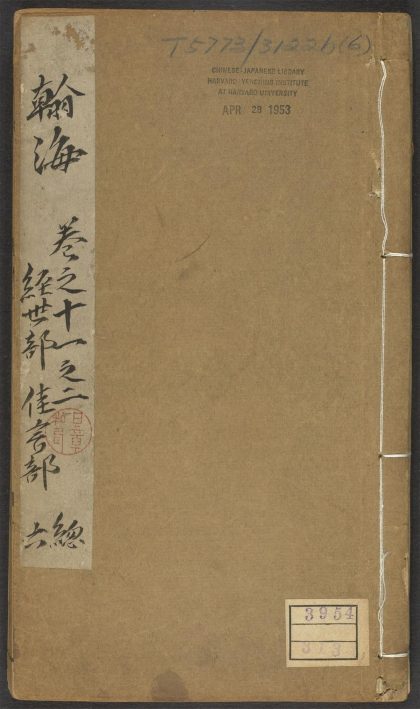 T5773/3122b(6)
CHINESE-JAPANESE LIBRARY
HARVARD-YENCHING INSTITUTE
AT HARVARD UNIVERSITY
APR 29 1953
翰海
卷之十一之二
經世部 佳言部
總六
3954